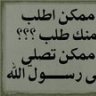 ممكن اطلب
منك طلب ؟؟؟
ممكن تصلى
رسول الله